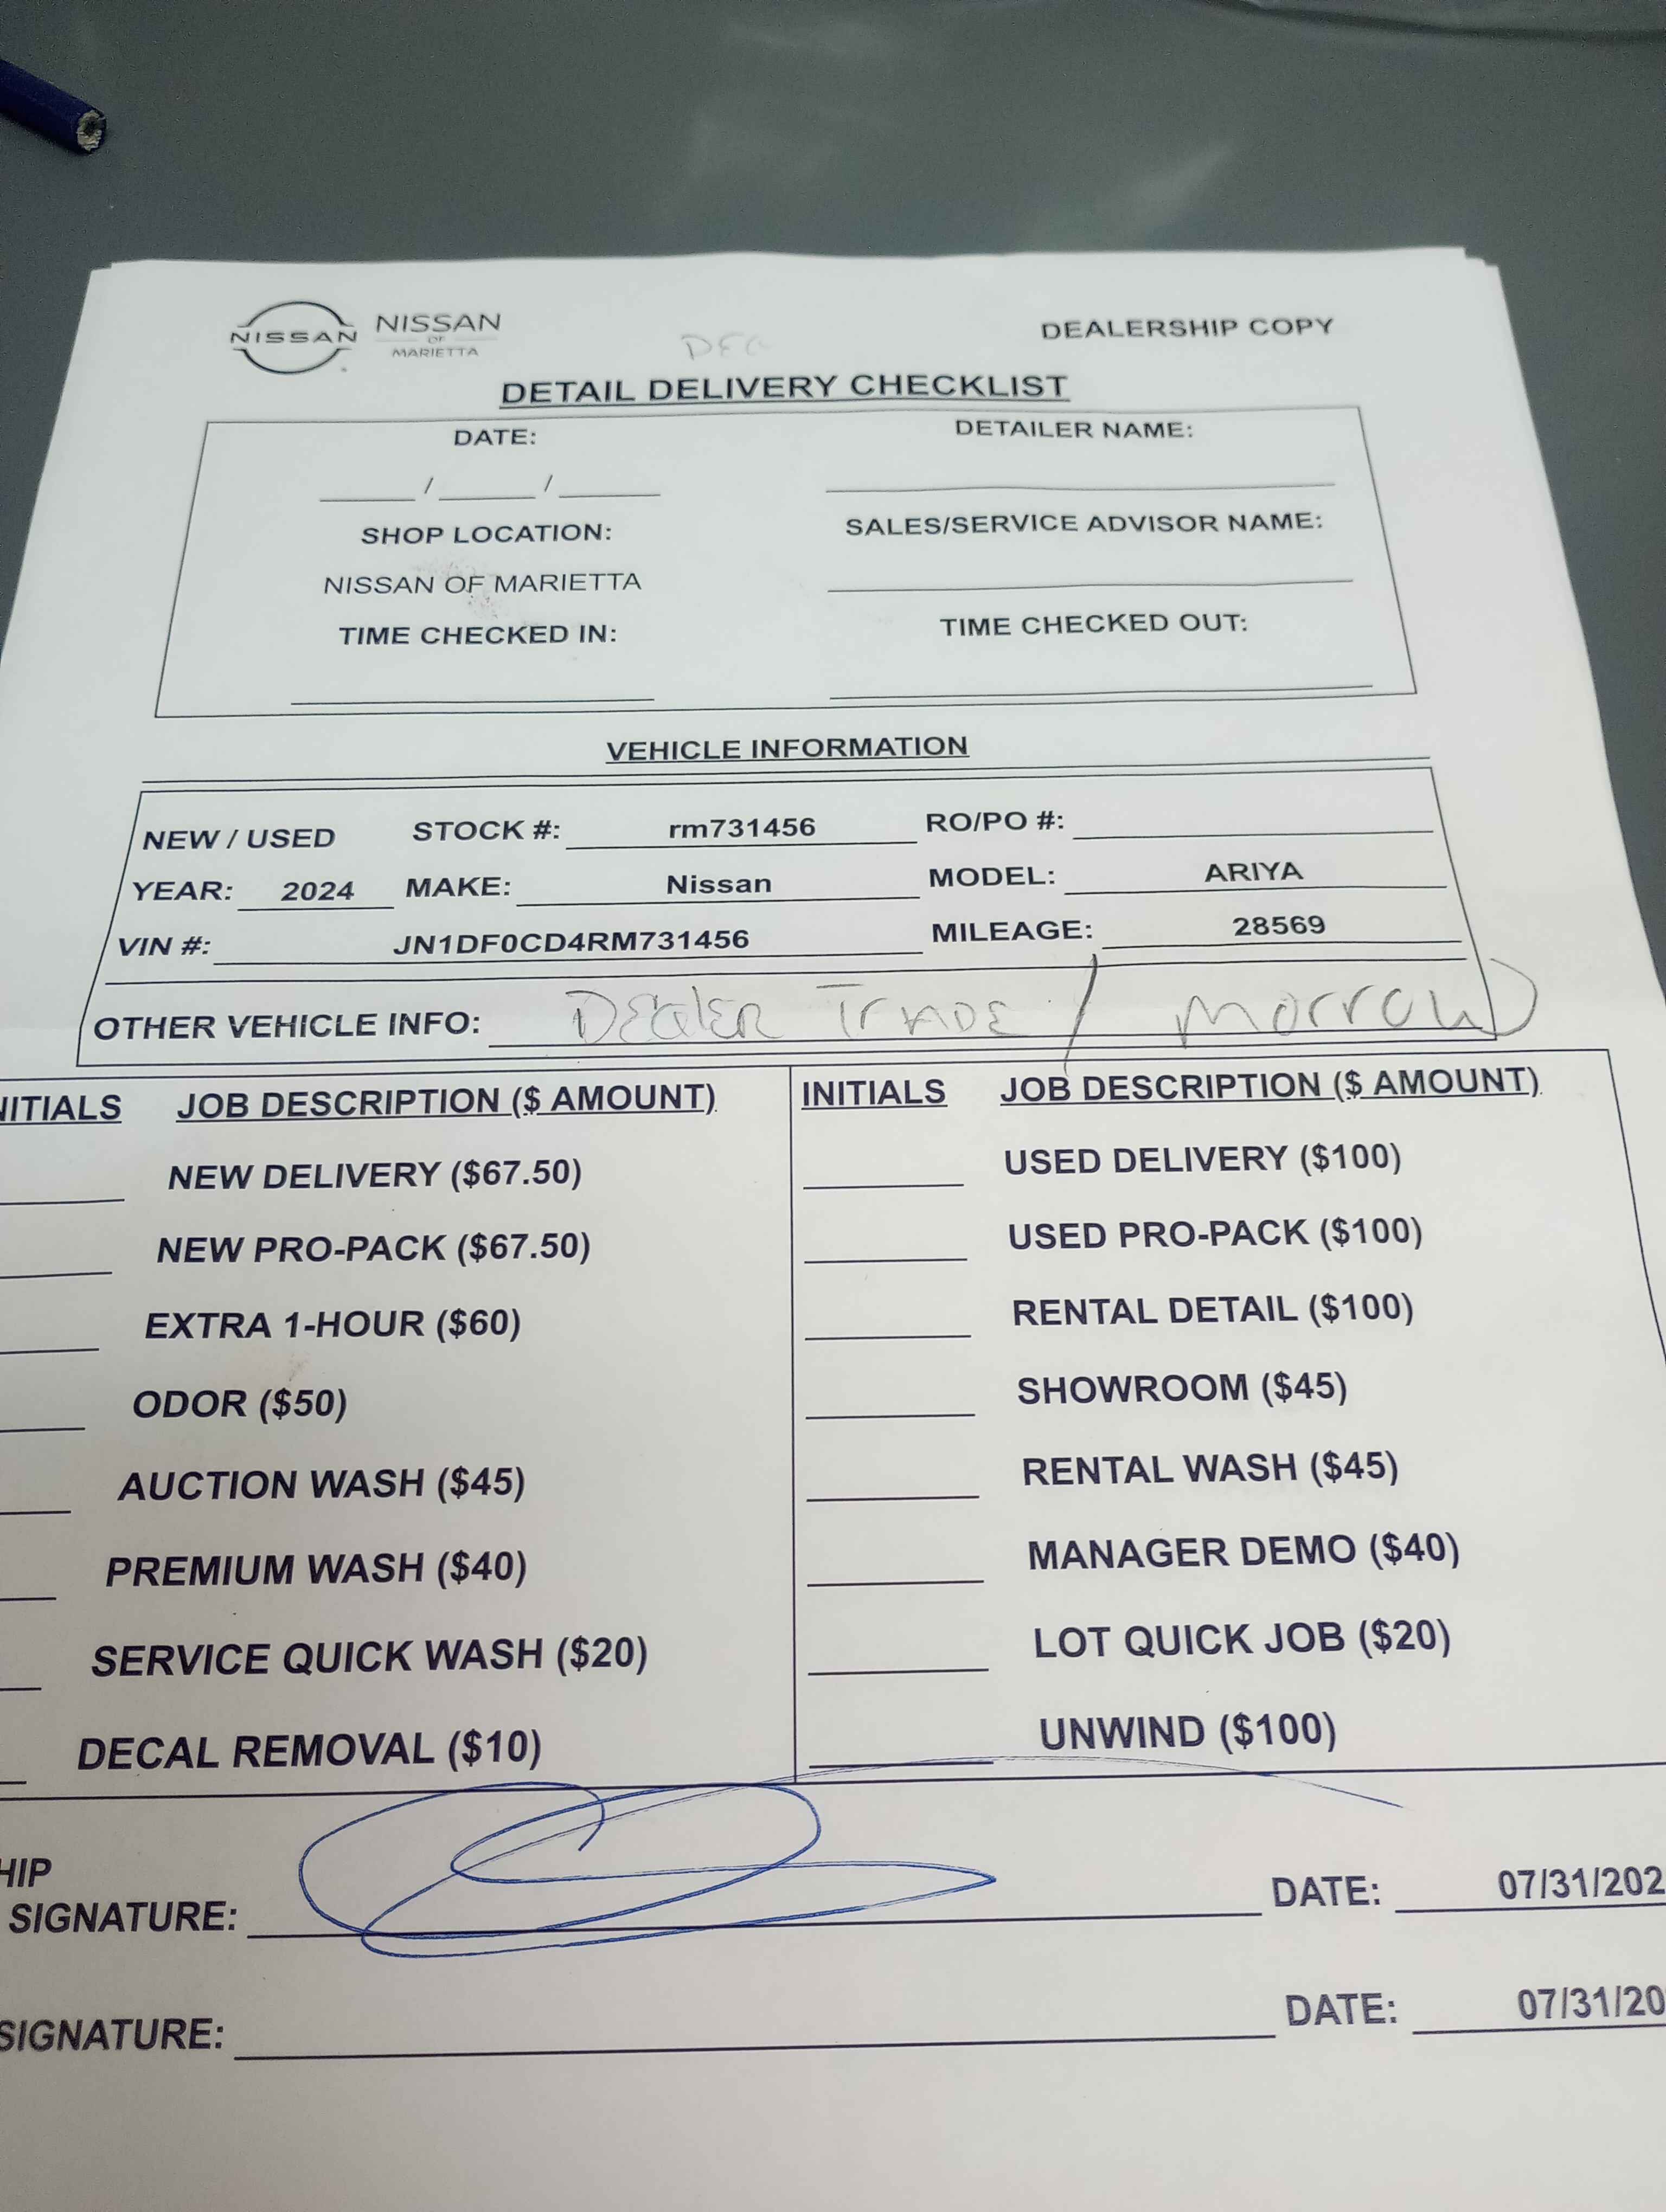 NISSAN NISSAN OF MARIETTA
DEALERSHIP COPY
DETAIL DELIVERY CHECKLIST
DATE: DETAILER NAME:
____/____/____ ____
SHOP LOCATION: SALES/SERVICE ADVISOR NAME:
NISSAN OF MARIETTA
TIME CHECKED IN: TIME CHECKED OUT:
VEHICLE INFORMATION
NEW / USED STOCK #: rm731456 RO/PO #:
YEAR: 2024 MAKE: Nissan MODEL: ARIYA
VIN #: JN1DF0CD4RM731456 MILEAGE: 28569
OTHER VEHICLE INFO: Dealer Trade / Morrow
NITIALS JOB DESCRIPTION ($ AMOUNT) INITIALS JOB DESCRIPTION ($ AMOUNT)
NEW DELIVERY ($67.50) USED DELIVERY ($100)
NEW PRO-PACK ($67.50) USED PRO-PACK ($100)
EXTRA 1-HOUR ($60) RENTAL DETAIL ($100)
ODOR ($50) SHOWROOM ($45)
AUCTION WASH ($45) RENTAL WASH ($45)
PREMIUM WASH ($40) MANAGER DEMO ($40)
SERVICE QUICK WASH ($20) LOT QUICK JOB ($20)
DECAL REMOVAL ($10) UNWIND ($100)
HIP
SIGNATURE: DATE: 07/31/202
SIGNATURE: DATE: 07/31/20